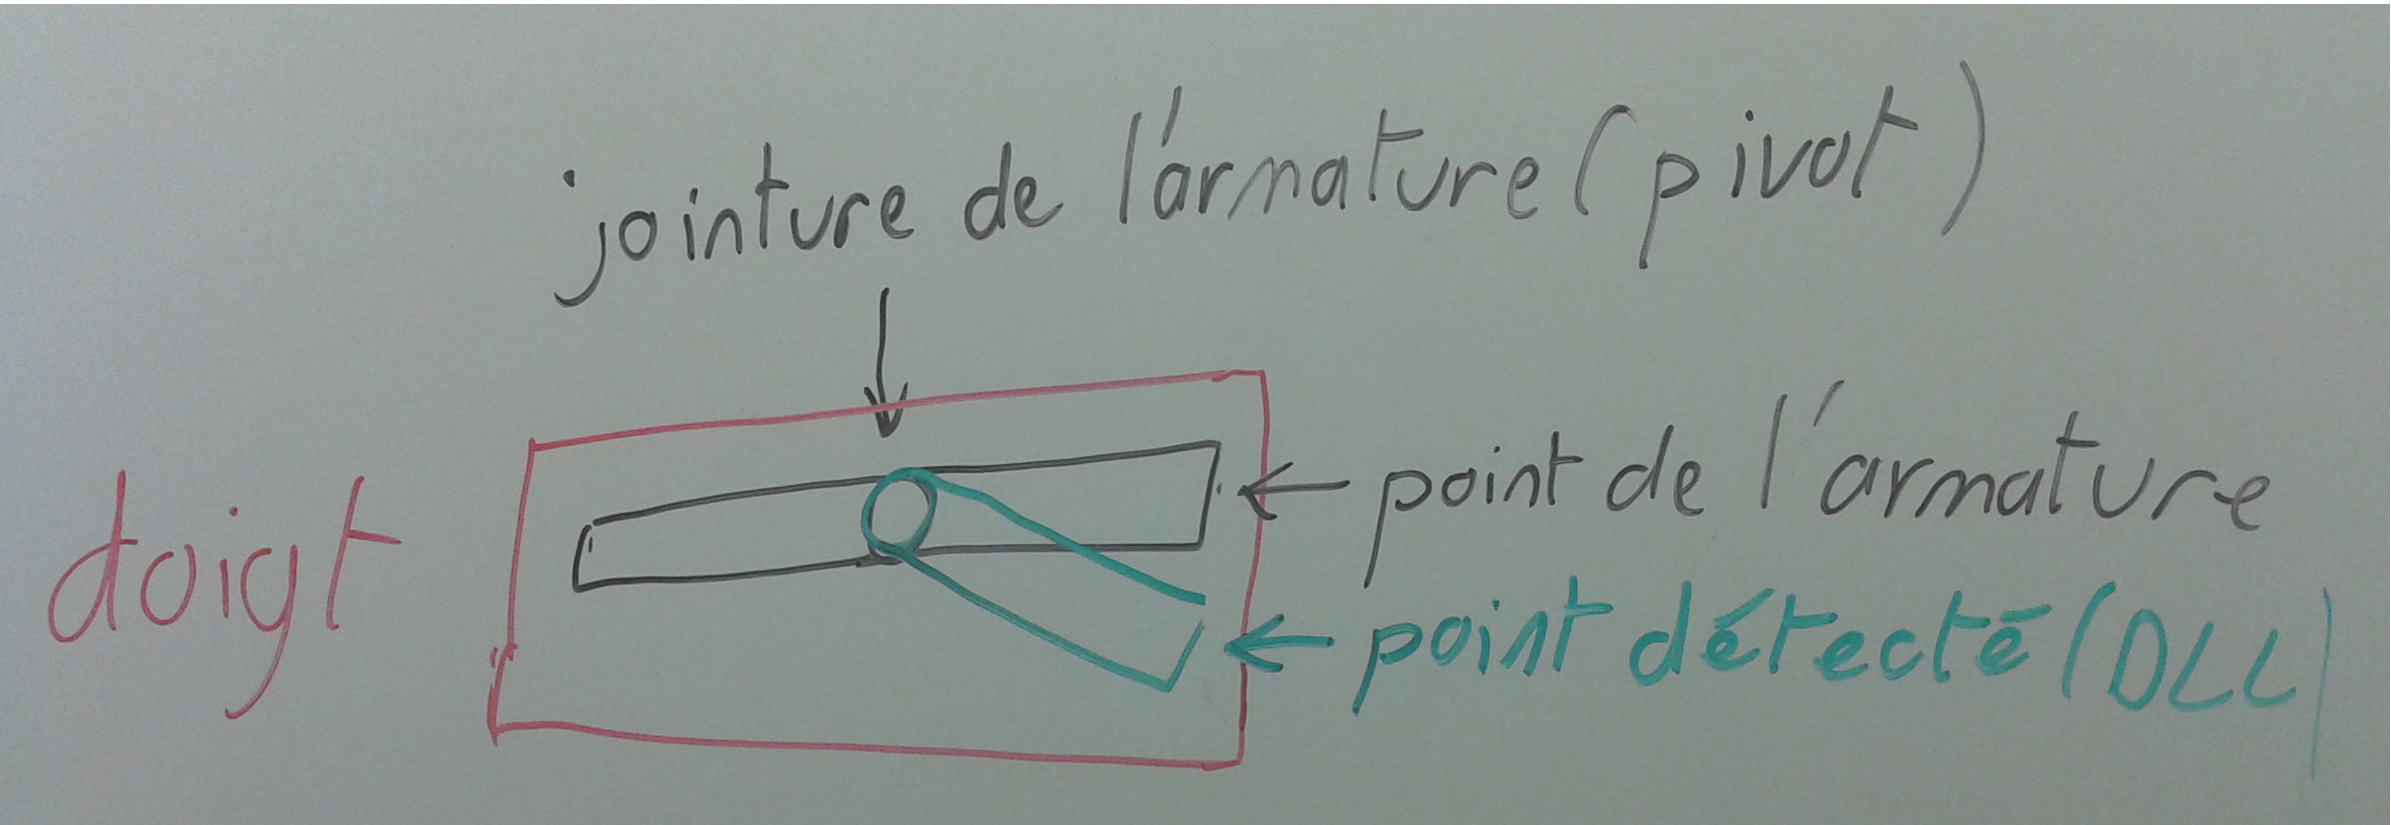 jointure de l'armature (pivot)
doigt
point de l'armature
point détecté (DLL)